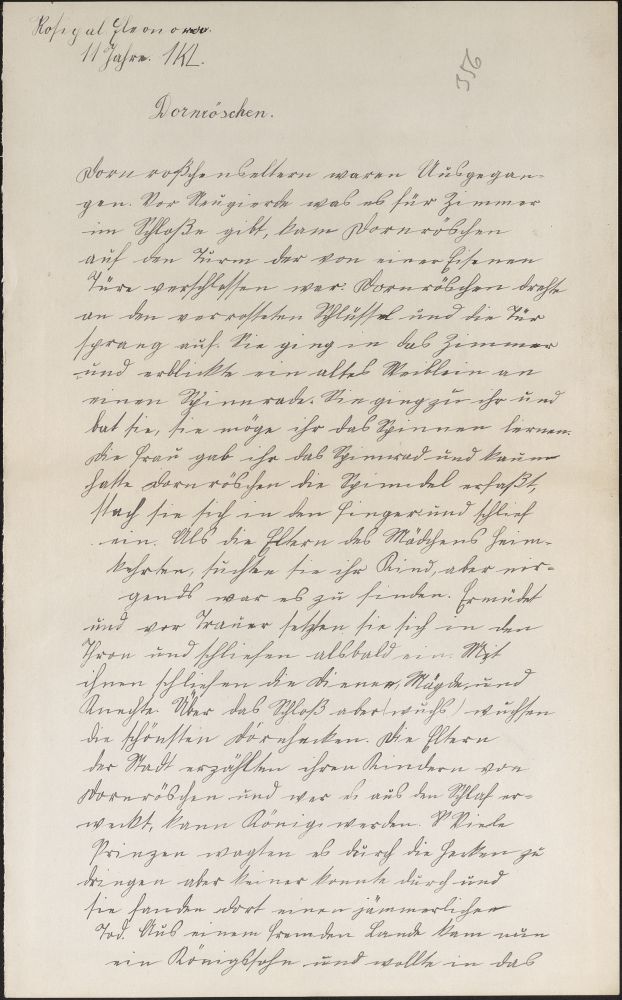 Rosigal Eleonora.
11 Jahre. 1Kl.
356
Dornröschen.
Dornroßchenseltern waren Ausgegan-
gen. Vor Neugierde was es für Zimmer
im Schloße gibt, kam Dornröschen
auf den Turm der von einer Eisenen
Türe verschlossen war. Dornröschen drehte
an den verrosteten Schlüssel und die Tür
sprang auf. Sie ging in das Zimmer
und erblickte ein altes Weiblein an
einen Spinnrade. Sie ging zu ihr und
bat sie, sie möge ihr das Spinnen lernen.
Die Frau gab ihr das Spinnrad und kaum
hatte Dornröschen die Spinndel erfaßt,
stach sie sich in den Finger und schlief
ein. Als die Eltern des Mädchens heim-
kehrten, suchten sie ihr Kind, aber nir-
gends war es zu finden. Ermüdet
und vor Trauer setzten sie sich in den
Thron und schliefen alsbald ein. Mit
ihnen schliefen die Diener, Mägde, und
Knechte. Über das Schloß aber (wuchs) wuchsen
die schönsten Dörnhecken. Die Eltern
der Stadt erzählten ihren Kindern von
Dornröschen und wer es aus den Schlaf er-
weckt, kann König werden. Viele
Prinzen wagten es durch die Hecken zu
dringen aber keiner konnte durch und
sie fanden dort einen jämmerlichen
Tod. Aus einem fremden Lande kam nun
ein Königssohn und wollte in das